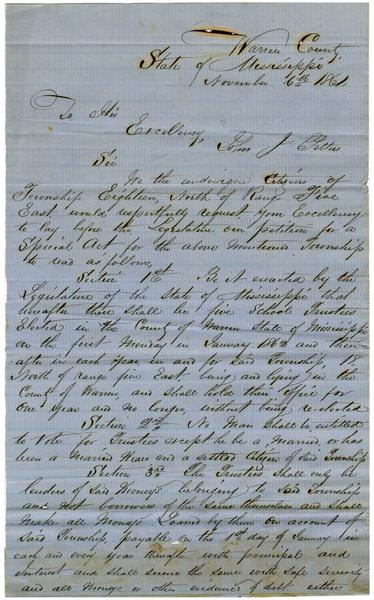 Warren County,
State of Mississippi
November 6th 1861
To His
Excellency, John J Pettus
Sir
We the undersigne Citizens of
Township Eighteen, North of Range Five
East would respectfully request your Excellency
to lay before the Legislature our petition for a
Special Act for the above mentioned Township
to read as follows,
Section 1st Be it enacted by the
Legislature of the State of Mississippi that
hereafter there shall be five School Trustees
Elected in the County of Warren State of Mississippi
on the first Monday in January 1862 and there-
after in each year in and for said Township 18
North of range five East, being and lying in the
County of Warren, and shall hold their office for
One year and no longer, without being re-elected
Section 2nd No Man shall be entitled
to Vote for Trustees except he be a Married, or has
been a Married Man and a settled Citizen of said Township
Section 3rd The Trustees shall only be
lenders of said Moneys belonging to said Township
and not borrowers of the same themselves and shall
make all Moneys Loaned by them on account of
said Township, payable on the 1st day of January in
each and every year thereafter with principal and
interest and shall secure the same with safe security
and all Moneys or other evidence of debt either